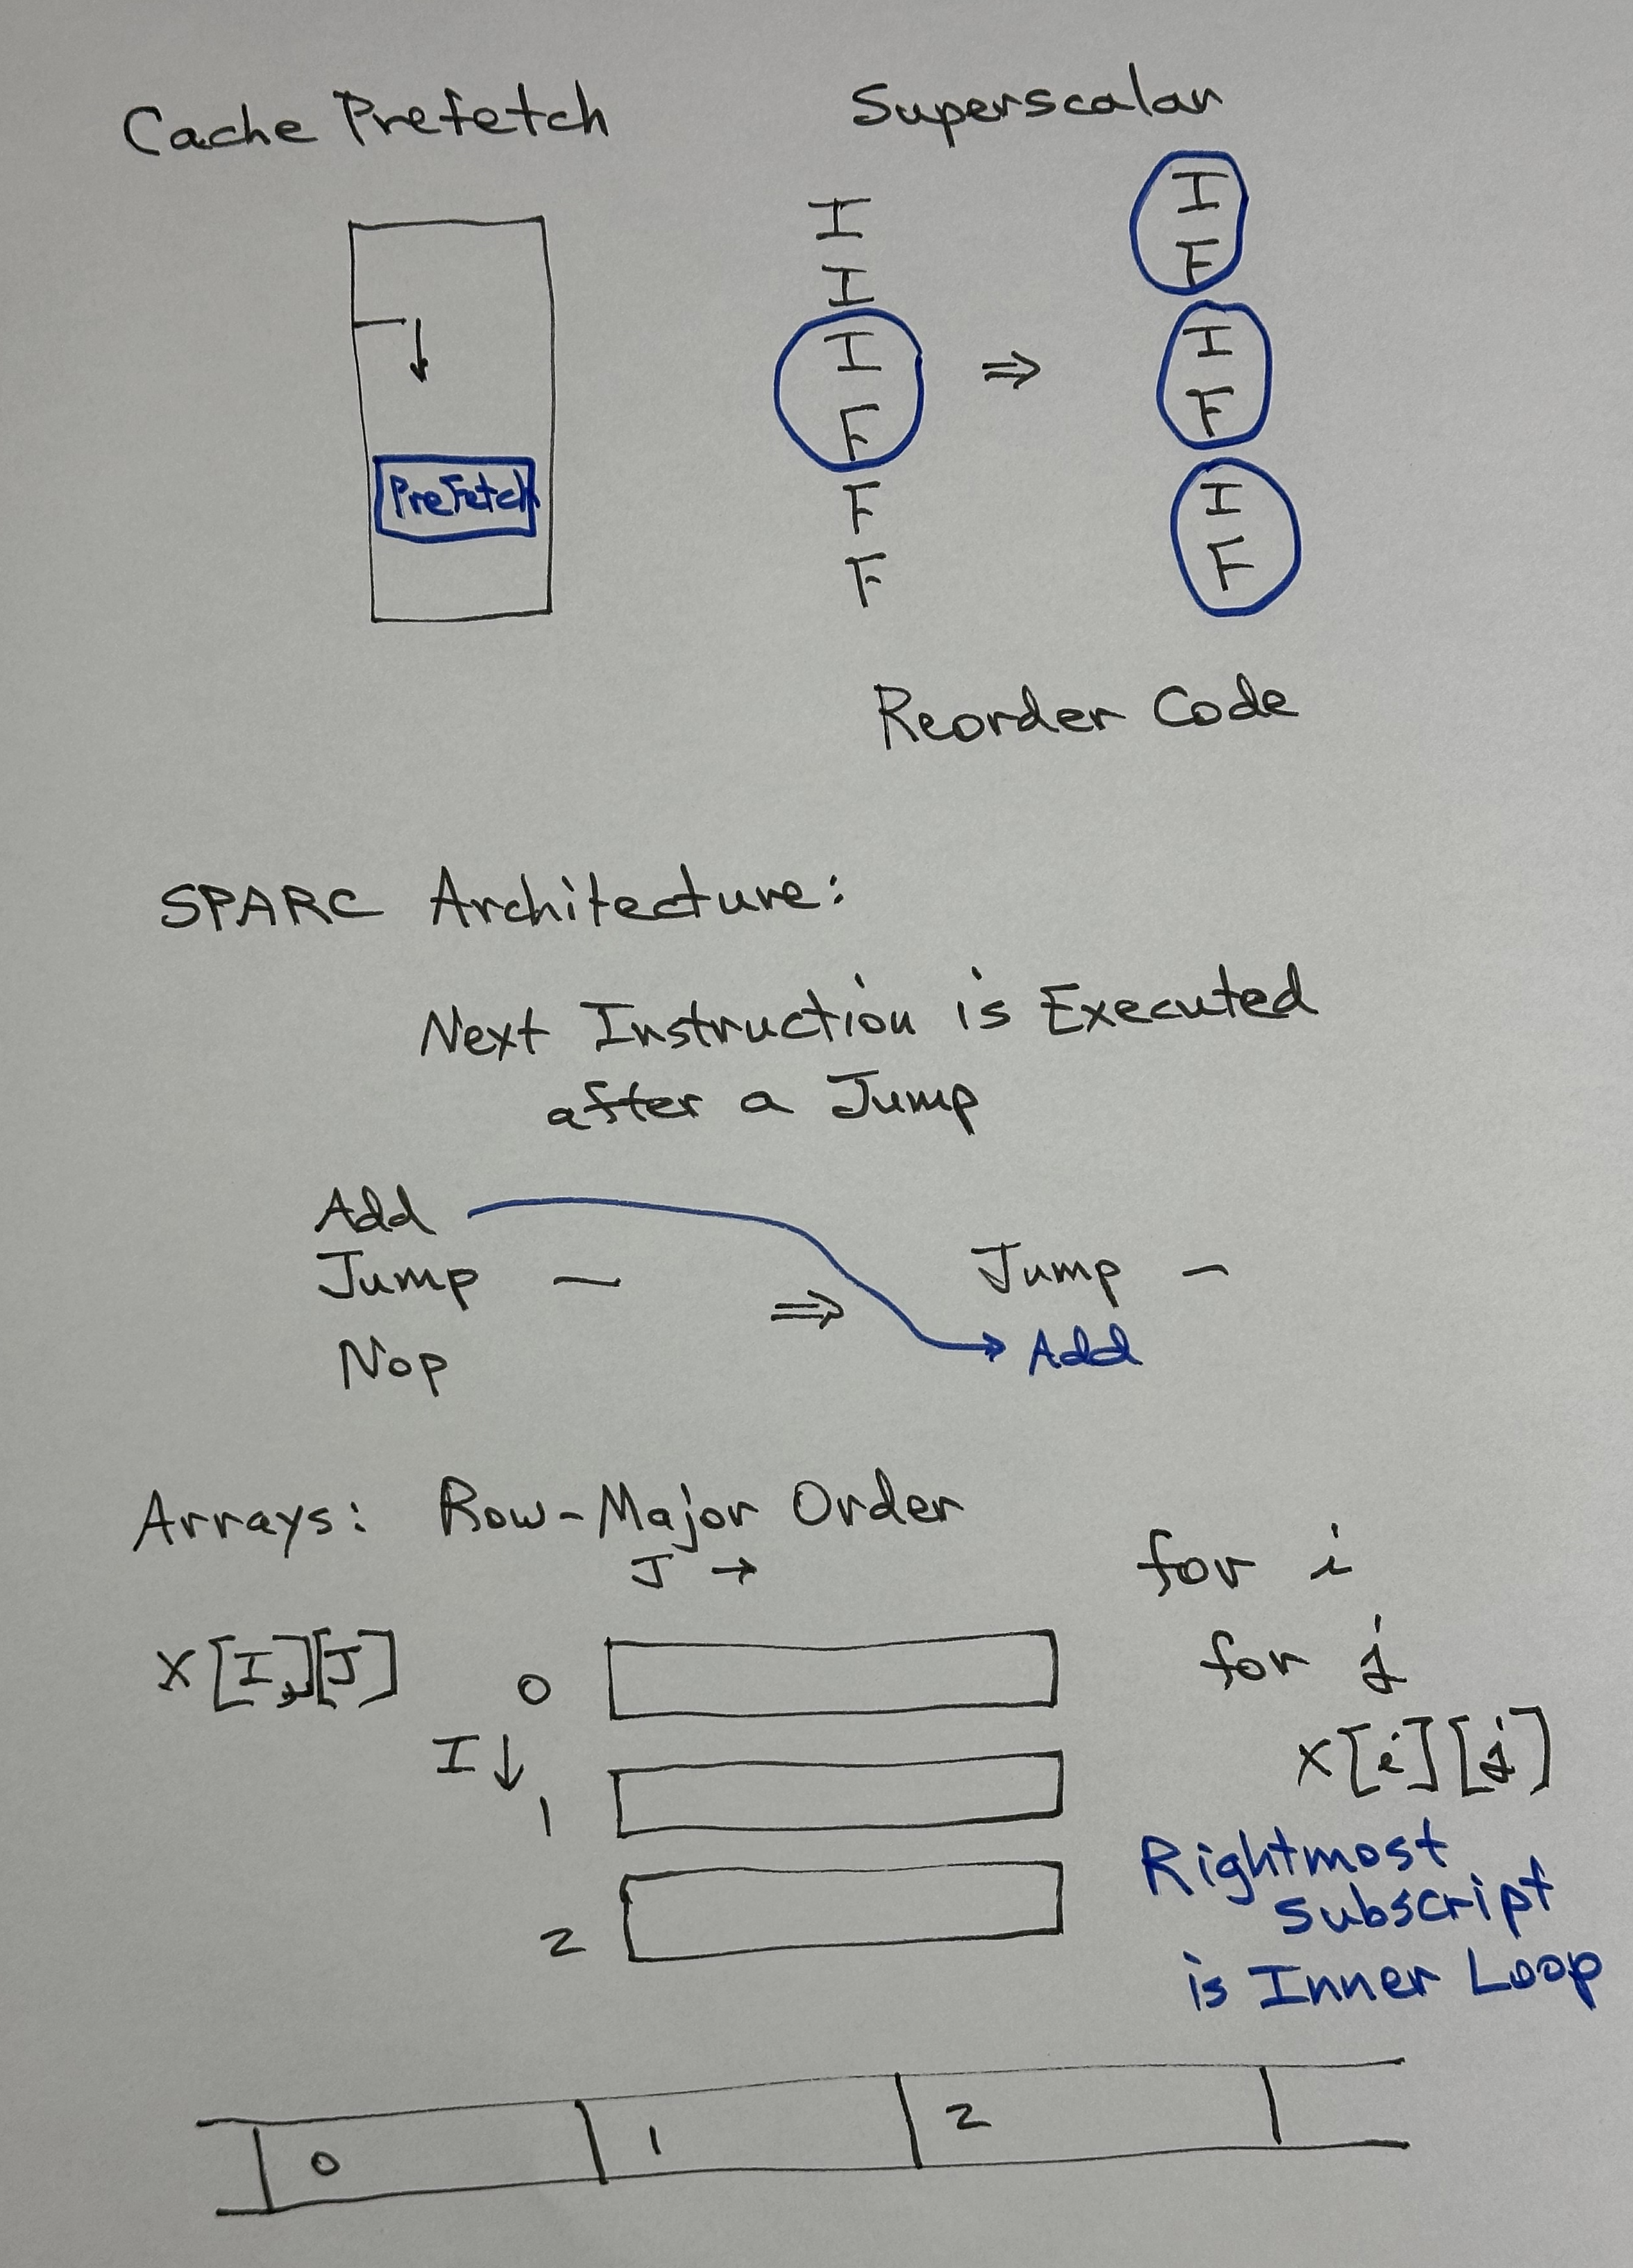 Cache Prefetch
PreFetch
Superscalar
I
I
I
F
F
F
⇒
I
F
I
F
I
F
Reorder Code
SPARC Architecture:
Next Instruction is Executed
after a Jump
Add
Jump —
Nop
⇒
Jump —
Add
Arrays: Row-Major Order
J →
X[I,][J]
I ↓
0
1
2
for i
for j
X[i][j]
Rightmost
subscript
is Inner Loop
0 1 2